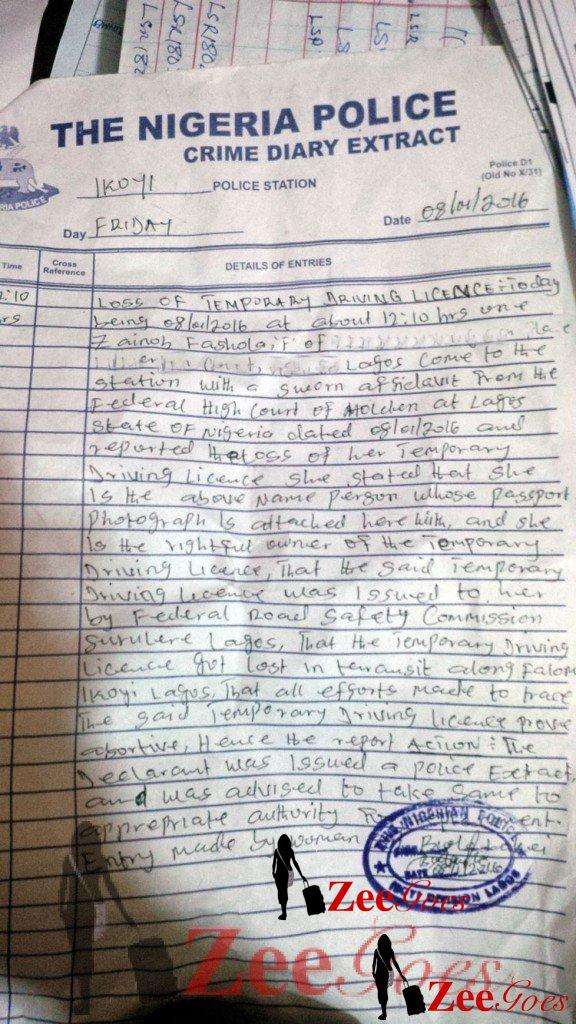 LSR180.
LSR
THE NIGERIA POLICE
CRIME DIARY EXTRACT
Police D1
(Old No X/31)
IKOYI POLICE STATION
RIA POLICE
Day FRIDAY
Date 08/01/2016
Time
Cross Reference
DETAILS OF ENTRIES
2:10 LOSS OF TEMPORARY DRIVING LICENCE: Today
hrs being 08/01/2016 at about 12:10 hrs one
Zainob Fashola 'F' of
Court, Lagos come to the
station with a sworn affidavit from the
Federal High Court of Holden at Lagos
State of Nigeria dated 08/01/2016 and
reported the loss of her Temporary
Driving Licence she stated that she
Is the above Name person whose passport
photograph is attached here with, and she
Is the rightful owner of the Temporary
Driving Licence, That the said Temporary
Driving Licence was Issued to her
by Federal Road Safety Commission
Surulere Lagos, That the Temporary Driving
Licence got lost in transit along Falomo
Ikoyi Lagos, That all efforts made to trace
The said Temporary Driving licence prove
abortive, Hence the report Action: The
Declarant was Issued a police Extract
and was advised to take same to
appropriate authority
Entry made by woman
NIGERIAN POLICE
DATE
DIVISION LAGOS
ZeeGoes
ZeeGoes
ZeeGoes